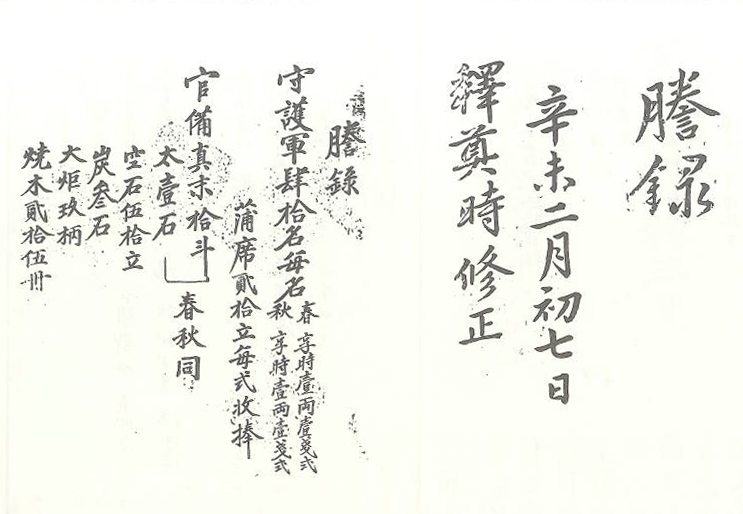 謄錄
辛未二月初七日
釋奠時修正
謄錄
守護軍肆拾名每名春享時壹兩壹戔式
秋享時壹兩壹戔式
蒲席貳拾立每式收捧
官備真末拾斗
太壹石
春秋同
空石伍拾立
炭叄石
大炬玖柄
燒木貳拾伍丹